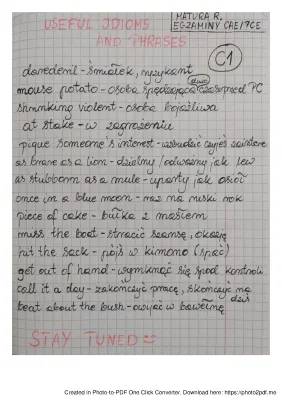 USEFUL IDIOMS
AND PHRASES
MATURA R,
EGZAMINY CAE/CPE
C1
daredevil - śmiałek, ryzykant
mouse potato - osoba spędzająca dużo czasu przed PC
shrinking violent - osoba bojaźliwa
at stake - w zagrożeniu
pique someone's interest - wzbudzić czyjeś zainteres
as brave as a lion - dzielny/odważny jak lew
as stubborn as a mule - uparty jak osioł
once in a blue moon - raz na ruski rok
piece of cake - bułka z masłem
miss the boat - stracić szansę, okazję
hit the sack - pójść w kimono (spać)
get out of hand - wymknąć się spod kontroli
call it a day - zakończyć pracę, skończyć na dziś
beat about the bush - owijać w bawełnę
STAY TUNED
Created in Photo-to-PDF One Click Converter. Download here: https://photo2pdf.me